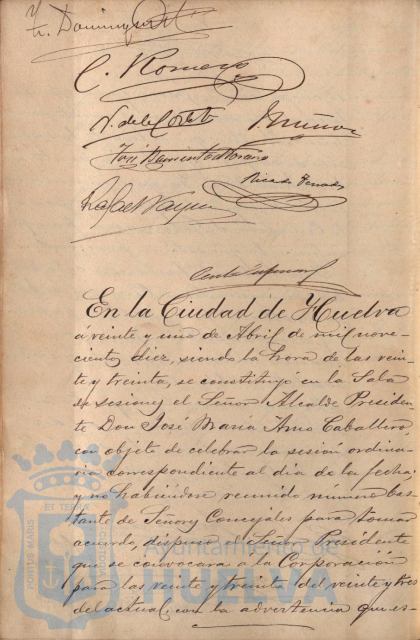 C. Romero
J. Muñoz
En la Ciudad de Huelva
á veinte y uno de Abril de mil nove-
cientos diez, siendo la hora de las vein-
te y treinta, se constituyó en la Sala
de sesiones el Señor Alcalde Presiden-
te Don José Maria Amo Caballero,
con objeto de celebrar la sesión ordina-
ria correspondiente al dia de la fecha;
y no habiéndose reunido número bas-
tante de Señores Concejales para tomar
acuerdo, dispuso el Señor Presidente
que se convocara a la Corporación
para las veinte y treinta del veinte y tres
del actual, con la advertencia que es-
Ayuntamiento de
HUELVA
PORTUS MARIS
ET TERRÆ